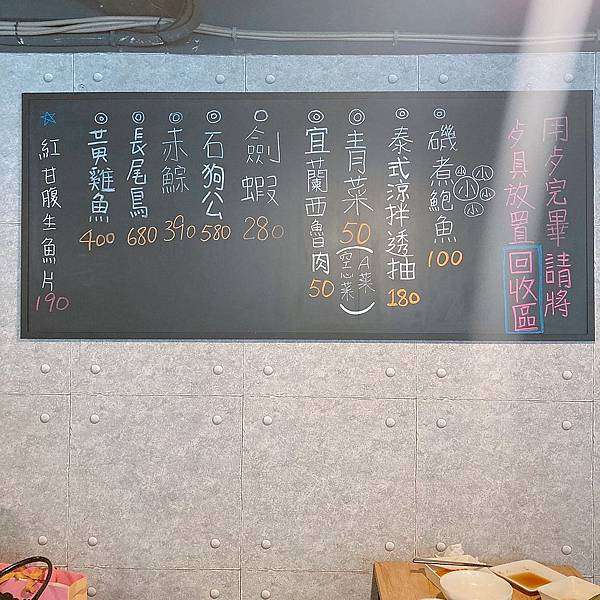 用歺完畢請將
歺具放置回收區
磯煮鮑魚 小小小小
100
泰式涼拌透抽
180
青菜
50
(A菜
空心菜)
宜蘭西魯肉
50
劍蝦
280
石狗公
580
赤鯮
390
長尾鳥
680
黃雞魚
400
紅甘腹生魚片
190